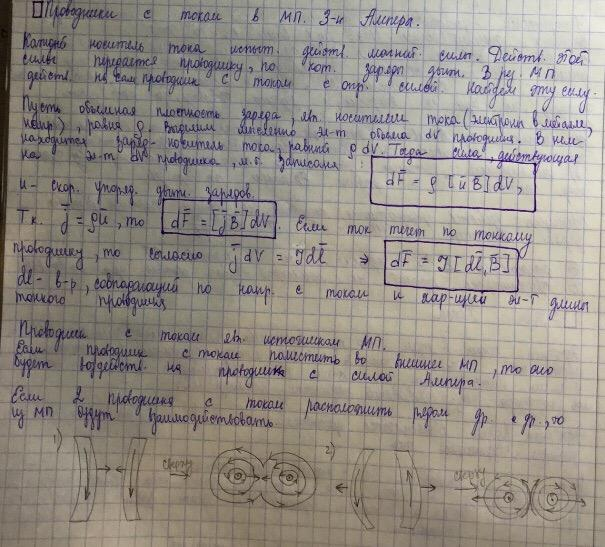 Проводники с током в МП. З-н Ампера.
Каждый носитель тока испыт. действ. магнит. силы. Действ. этой
силы передается проводнику, по кот. заряды движ. В рез. МП
действ. на сам проводник с током с опр. силой. Найдем эту силу.
Пусть объемная плотность заряда, явл. носителем тока (электроны в металле,
напр), равна ρ. Выделим мысленно эл-т объема dV проводника. В нем
находится заряд-носитель тока, равный ρ dV. Тогда сила, действующая
на эл-т dV проводника, м.б. записана: dF̄ = ρ [ū B̄] dV,
ū - скор. упоряд. движ. зарядов.
Т.к. j̄ = ρū, то dF̄ = [j̄ B̄] dV. Если ток течет по тонкому
проводнику, то согласно j̄ dV = J dl̄ ⇒ dF̄ = J [dl̄, B̄]
dl̄ - в-р, совпадающий по напр. с током и хар-щий эл-т длины
тонкого проводника
Проводник с током явл. источником МП.
Если проводник с током поместить во внешнее МП, то оно
будет воздейств. на проводник с силой Ампера.
Если 2 проводника с током расположить рядом др. с др., то
их МП будут взаимодействовать.
1) сверху 2) сверху